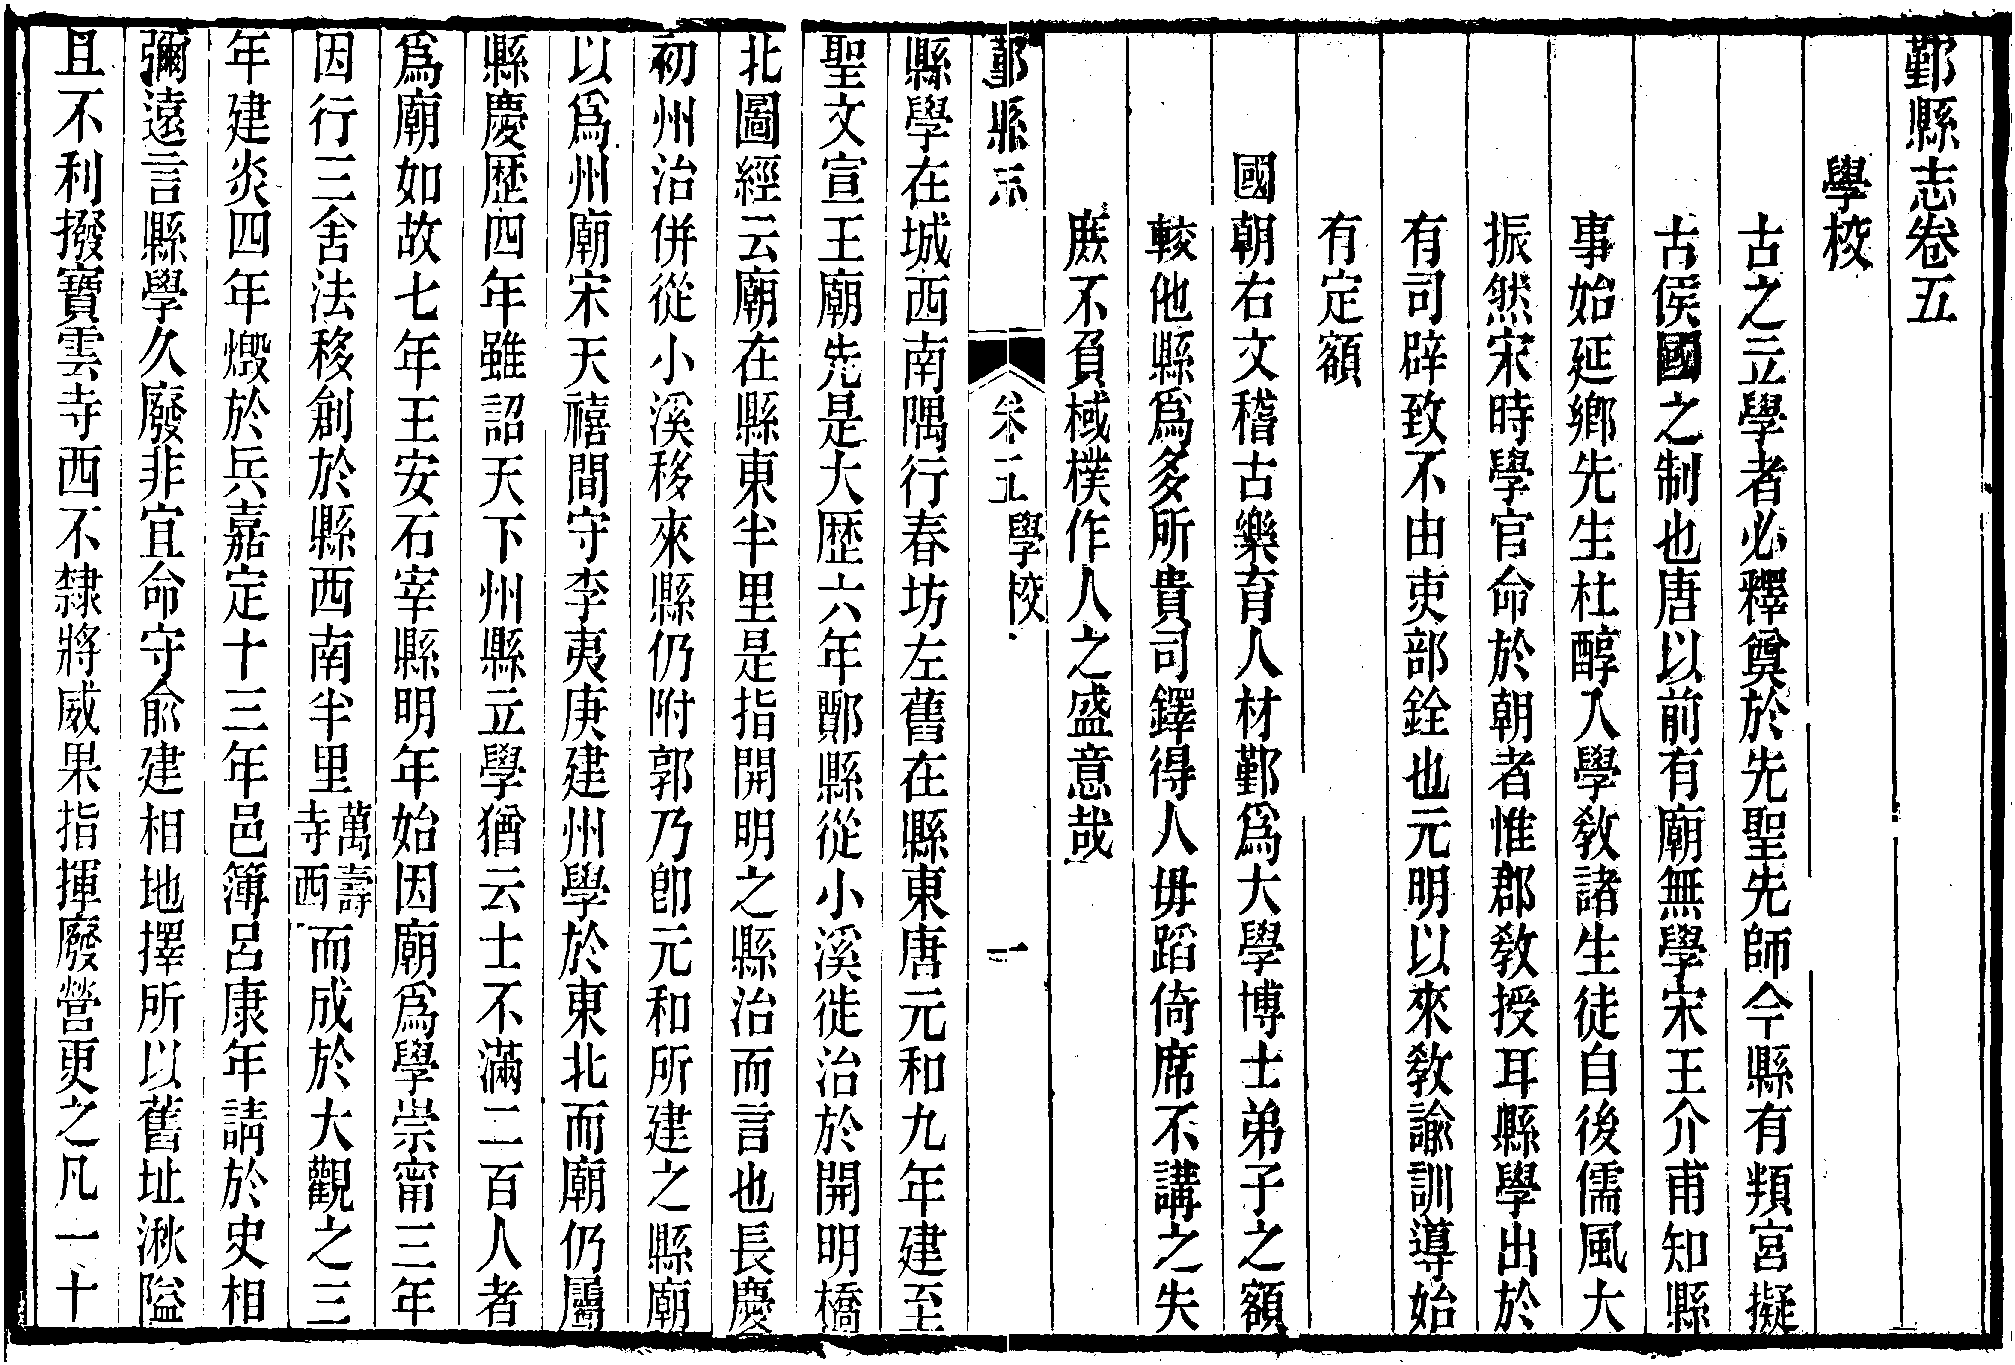 鄞縣志卷五
學校
古之立學者必釋奠於先聖先師今縣有頖宮擬
古侯國之制也唐以前有廟無學宋王介甫知縣
事始延鄉先生杜醇入學敎諸生徒自後儒風大
振然宋時學官命於朝者惟郡敎授耳縣學出於
有司辟致不由吏部銓也元明以來敎諭訓導始
有定額
國朝右文稽古樂育人材鄞爲大學博士弟子之額
較他縣爲多所貴司鐸得人毋蹈倚席不講之失
庶不負棫樸作人之盛意哉
鄞縣志 卷五 學校 一
縣學在城西南隅行春坊左舊在縣東唐元和九年建至
聖文宣王廟先是大歷六年鄮縣從小溪徙治於開明橋
北圖經云廟在縣東半里是指開明之縣治而言也長慶
初州治併從小溪移來縣仍附郭乃卽元和所建之縣廟
以爲州廟宋天禧間守李夷庚建州學於東北而廟仍屬
縣慶歷四年雖詔天下州縣立學猶云士不滿二百人者
爲廟如故七年王安石宰縣明年始因廟爲學崇甯三年
因行三舍法移創於縣西南半里萬壽寺西而成於大觀之三
年建炎四年燬於兵嘉定十三年邑簿呂康年請於史相
彌遠言縣學久廢非宜命守俞建相地擇所以舊址湫隘
且不利撥寶雲寺西不隸將威果指揮廢營更之凡一十